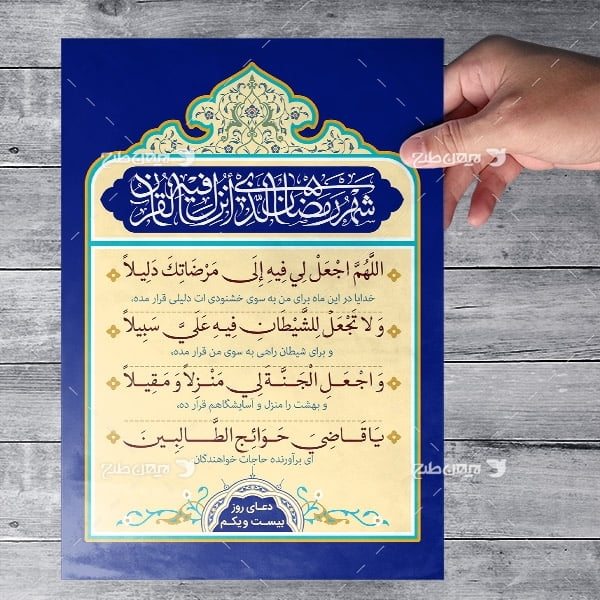 شَهْرُ رَمَضَانَ الَّذِي أُنْزِلَ فِيهِ الْقُرْآنُ
اللَّهُمَّ اجْعَلْ لِي فِيهِ إِلَى مَرْضَاتِكَ دَلِيلاً
خدایا در این ماه برای من به سوی خشنودی ات دلیلی قرار مده،
وَ لا تَجْعَلْ لِلشَّيْطَانِ فِيهِ عَلَيَّ سَبِيلاً
و برای شیطان راهی به سوی من قرار مده،
وَ اجْعَلِ الْجَنَّةَ لِي مَنْزِلاً وَ مَقِيلاً
و بهشت را منزل و آسایشگاهم قرار ده،
يَا قَاضِيَ حَوَائِجِ الطَّالِبِينَ
ای برآورنده حاجات خواهندگان
دعای روز
بیست و یکم
میهن طرح
میهن طرح
میهن طرح
میهن طرح